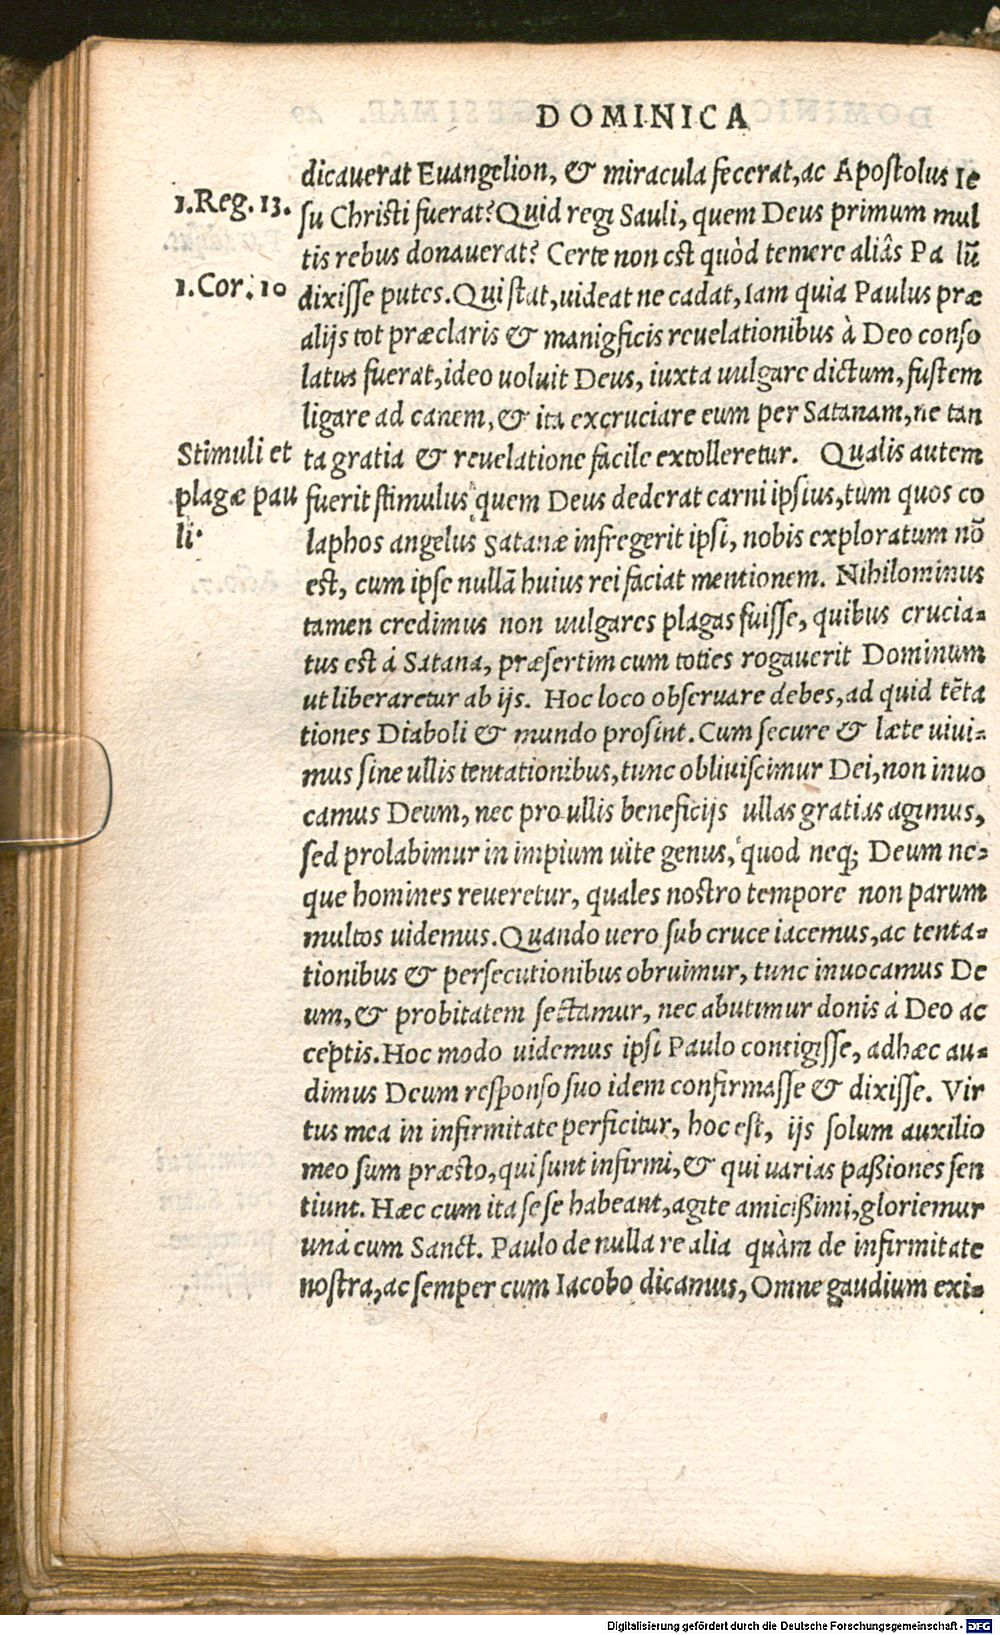 DOMINICA
dicauerat Euangelion, & miracula fecerat, ac Apostolus Ie
1.Reg. 13.
su Christi fuerat? Quid regi Sauli, quem Deus primum mul
tis rebus donauerat? Certe non est quòd temere aliâs Pa lũ
1.Cor. 10
dixisse putes. Qui stat, uideat ne cadat, Iam quia Paulus præ
alijs tot præclaris & manigficis reuelationibus à Deo conso
latus fuerat, ideo uoluit Deus, iuxta uulgare dictum, fustem
ligare ad canem, & ita excruciare eum per Satanam, ne tan
Stimuli et
plagæ pau
li.
ta gratia & reuelatione facile extolleretur. Qualis autem
fuerit stimulus quem Deus dederat carni ipsius, tum quos co
laphos angelus Satanæ infregerit ipsi, nobis exploratum nõ
est, cum ipse nullã huius rei faciat mentionem. Nihilominus
tamen credimus non uulgares plagas fuisse, quibus crucia-
tus est à Satana, præsertim cum toties rogauerit Dominum
ut liberaretur ab ijs. Hoc loco obseruare debes, ad quid tẽta
tiones Diaboli & mundo prosint. Cum secure & læte uiui-
mus sine ullis tentationibus, tunc obliuiscimur Dei, non inuo
camus Deum, nec pro ullis beneficijs ullas gratias agimus,
sed prolabimur in impium uite genus, quod neq; Deum ne-
que homines reueretur, quales nostro tempore non parum
multos uidemus. Quando uero sub cruce iacemus, ac tenta-
tionibus & persecutionibus obruimur, tunc inuocamus De
um, & probitatem sectamur, nec abutimur donis à Deo ac
ceptis. Hoc modo uidemus ipsi Paulo contigisse, adhæc au-
dimus Deum responso suo idem confirmasse & dixisse. Vir
tus mea in infirmitate perficitur, hoc est, ijs solum auxilio
meo sum præsto, qui sunt infirmi, & qui uarias paßiones sen
tiunt. Hæc cum ita sese habeant, agite amicißimi, gloriemur
unà cum Sanct. Paulo de nulla re alia quàm de infirmitate
nostra, ac semper cum Iacobo dicamus, Omne gaudium exi-
Digitalisierung gefördert durch die Deutsche Forschungsgemeinschaft - DFG